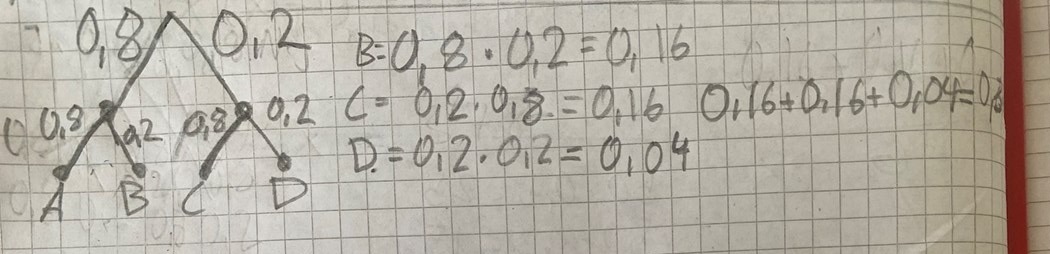 0,8 0,2 B=0,8·0,2=0,16
0,8 0,2 0,8 0,2 C= 0,2·0,8.=0,16 0,16+0,16+0,04=0,
D.=0,2·0,2=0,04
A B C D